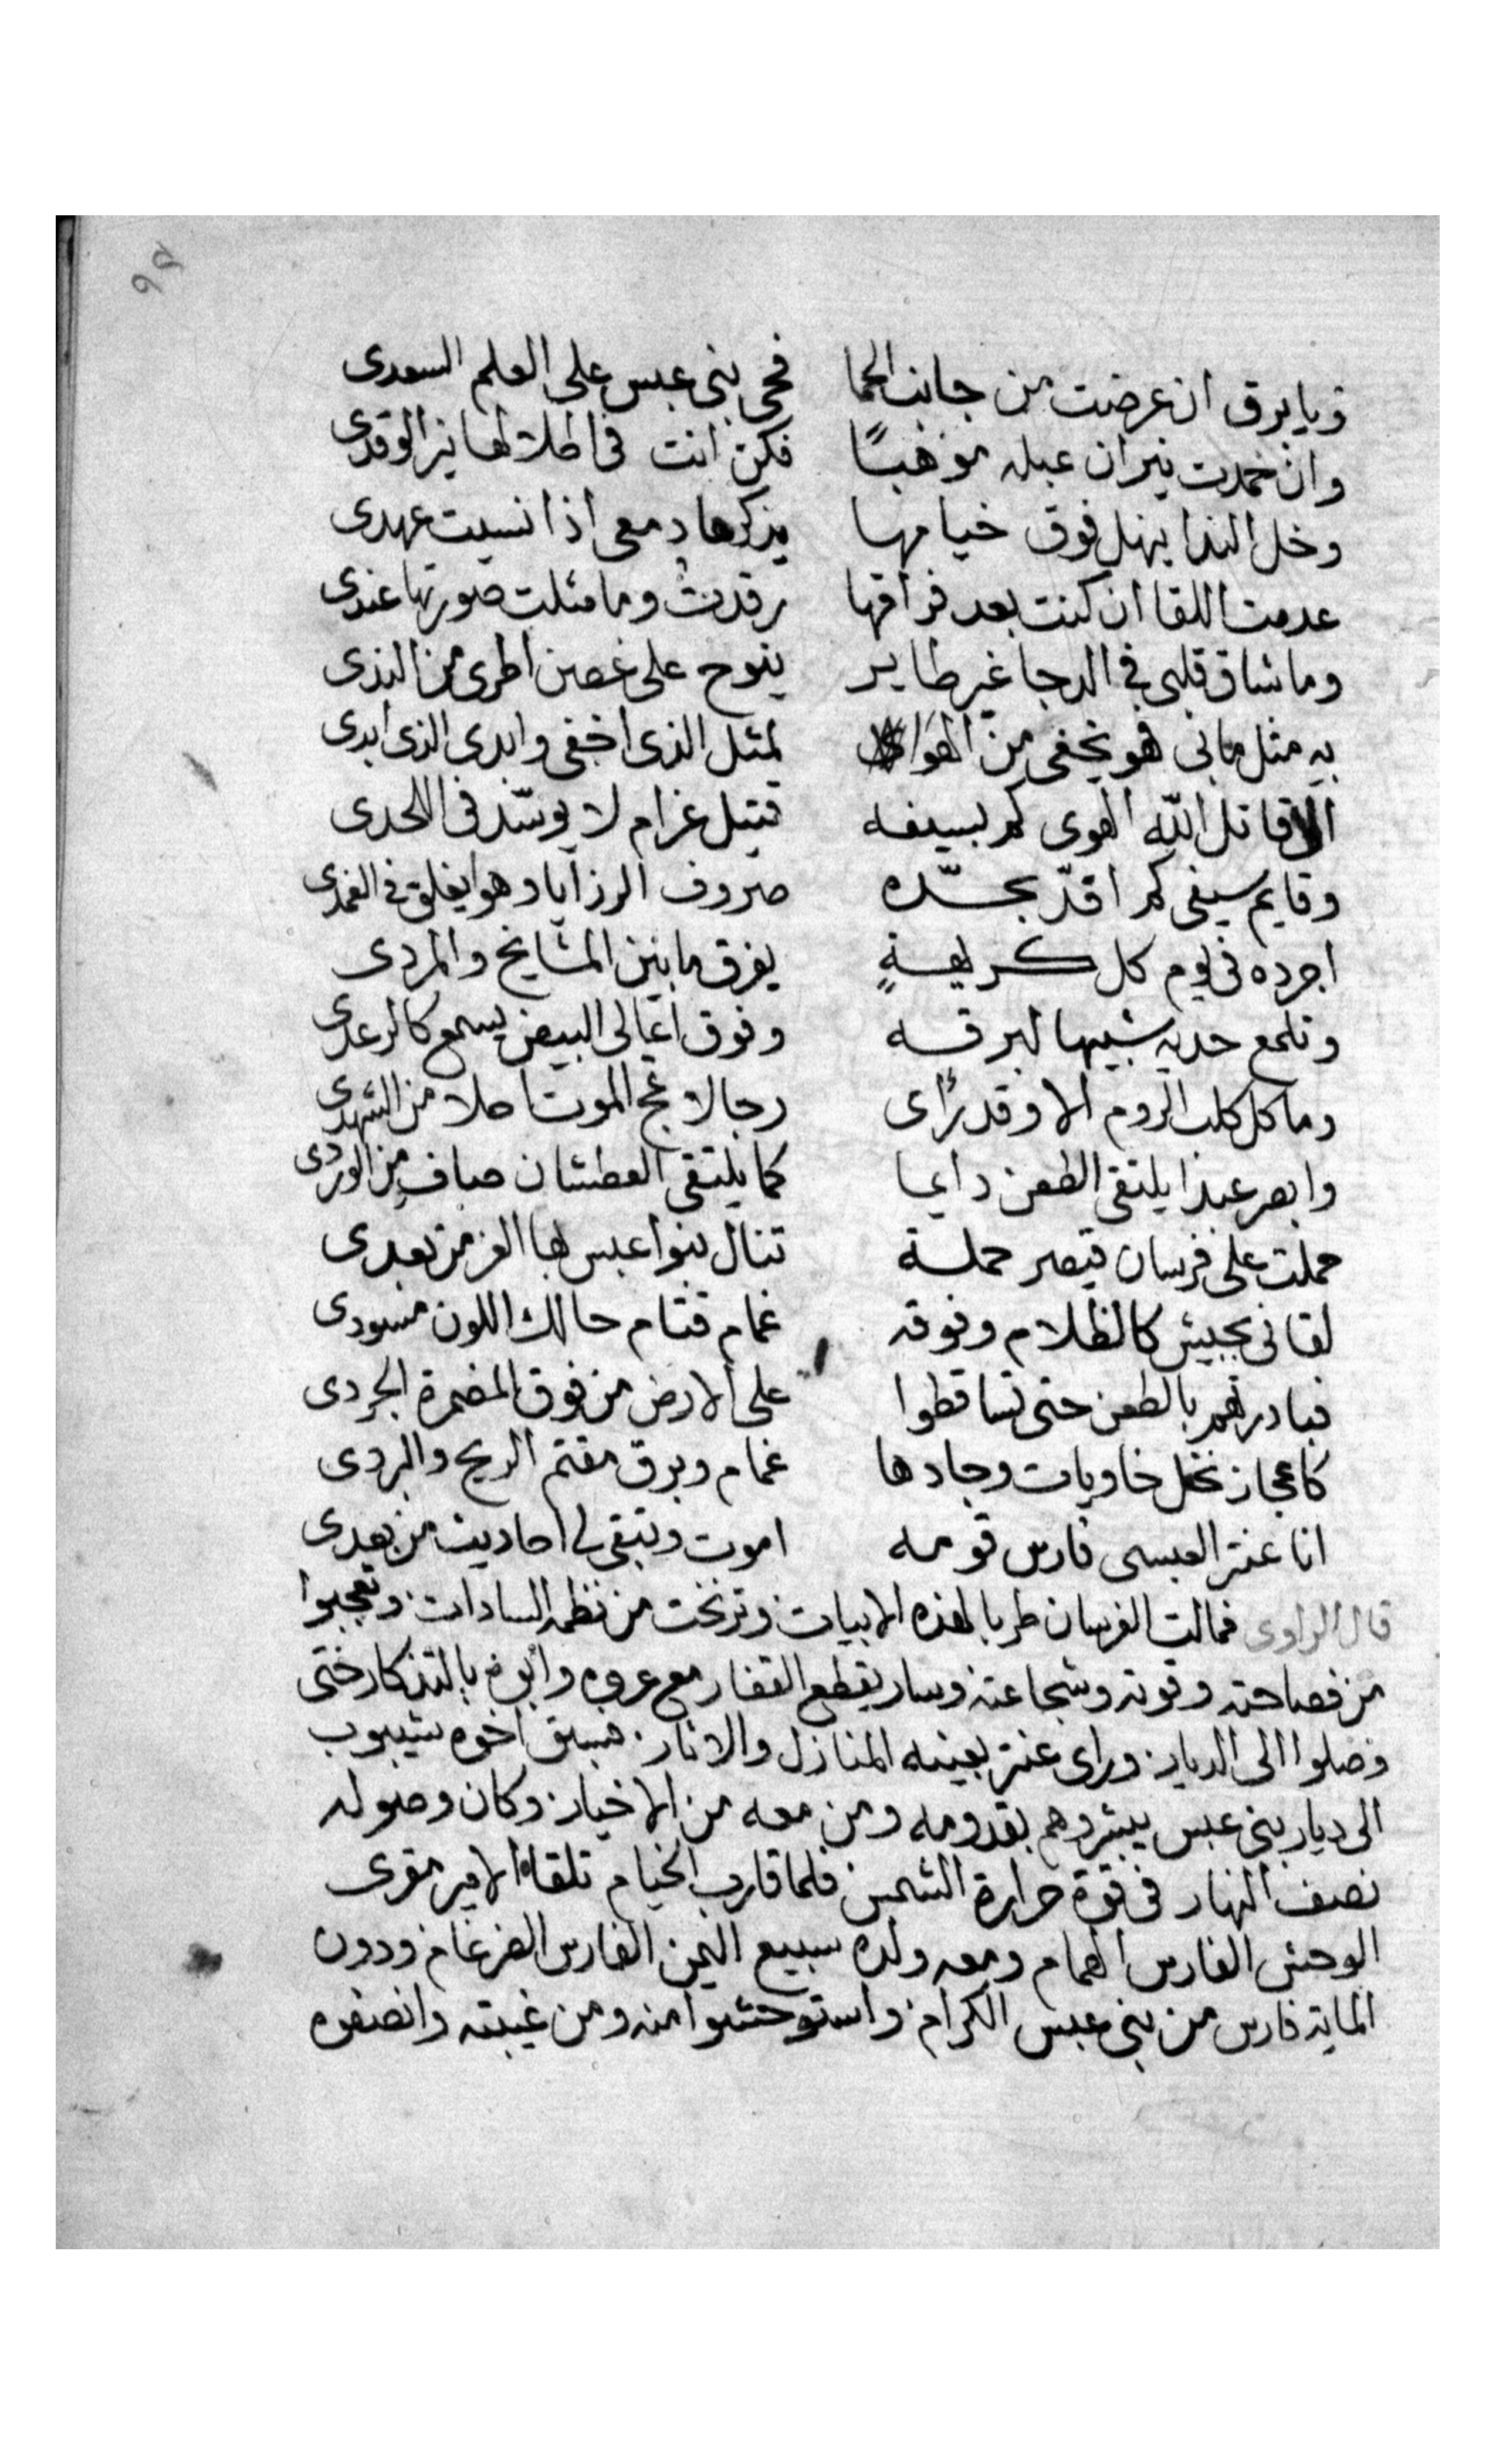 ٩٥
ويا برق ان عرضت من جانب الحما فحي بني عبس على العلم السعدى
وان خمدت نيران عبله موهنًا فكن انت في اطلالها نير الوقدى
وخل الندا ينهل فوق خيامها يذكرها دمعى اذا نسيت عهدى
عدمت اللقا ان كنت بعد فراقها رقدت وما مثلت صورتها عندى
وما شاق قلبى في الدجا غير طاير ينوح على غصن اطرى من الندى
به مثل مابى فهو يخفى من الهوا لمثل الذى اخفى وابدى الذى ابدى
الا قاتل الله الهوى كم بسيفه قتيل غرام لا يوسّد في اللحدى
وقايم سيفى كم اقدّ بحدّه صروف الرزايا وهو يفلق في الغمدى
اجرده في يوم كل كريهةٍ يفرق مابين المشايخ والمردى
وتلمع حديه شبيها لبرقه وفوق اعالى البيض يسمع كالرعدى
وما كل كلب الروم الا وقد رأى رجالا مج الموت احلا من الشهدى
وابصر عبدا يلتقى الطعن دايما كما يلتقى العطشان صاف من الوردى
حملت على فرسان قيصر حملة تنال بنوا عبس بها العز من بعدى
لقانى بجيش كالظلام وفوقه غمام قتام حالك اللون مسودى
فبادرتهم بالطعن حتى تساقطوا على الارض من فوق المضمرة الجردى
كاعجاز نخل خاويات وجادها غمام وبرق مقتم الريح والبردى
انا عنتر العبسى فارس قومه اموت وتبقى لى احاديث من بعدى
قال الراوى فمالت الفرسان طربا لهذه الابيات وترنخت من نظمه السادات وتعجبوا
من فصاحته وقوته وشجاعته وسار يقطع القفار مع عروه وأبوه بالتذكار حتى
وصلوا الى الديار وراى عنتر بعينه المنازل والاثار فسبق اخوه شيبوب
الى ديار بنى عبس يبشروهم بقدومه ومن معه من الاخيار وكان وصوله
نصف النهار في قوة حرارة الشمس فلما قارب الخيام تلقاه الامير مقرى
الوحش الفارس الهمام ومعه ولده سبيع اليمن الفارس الضرغام ودون
الماية فارس من بنى عبس الكرام واستوحشوا منه ومن غيبته وانصفوه